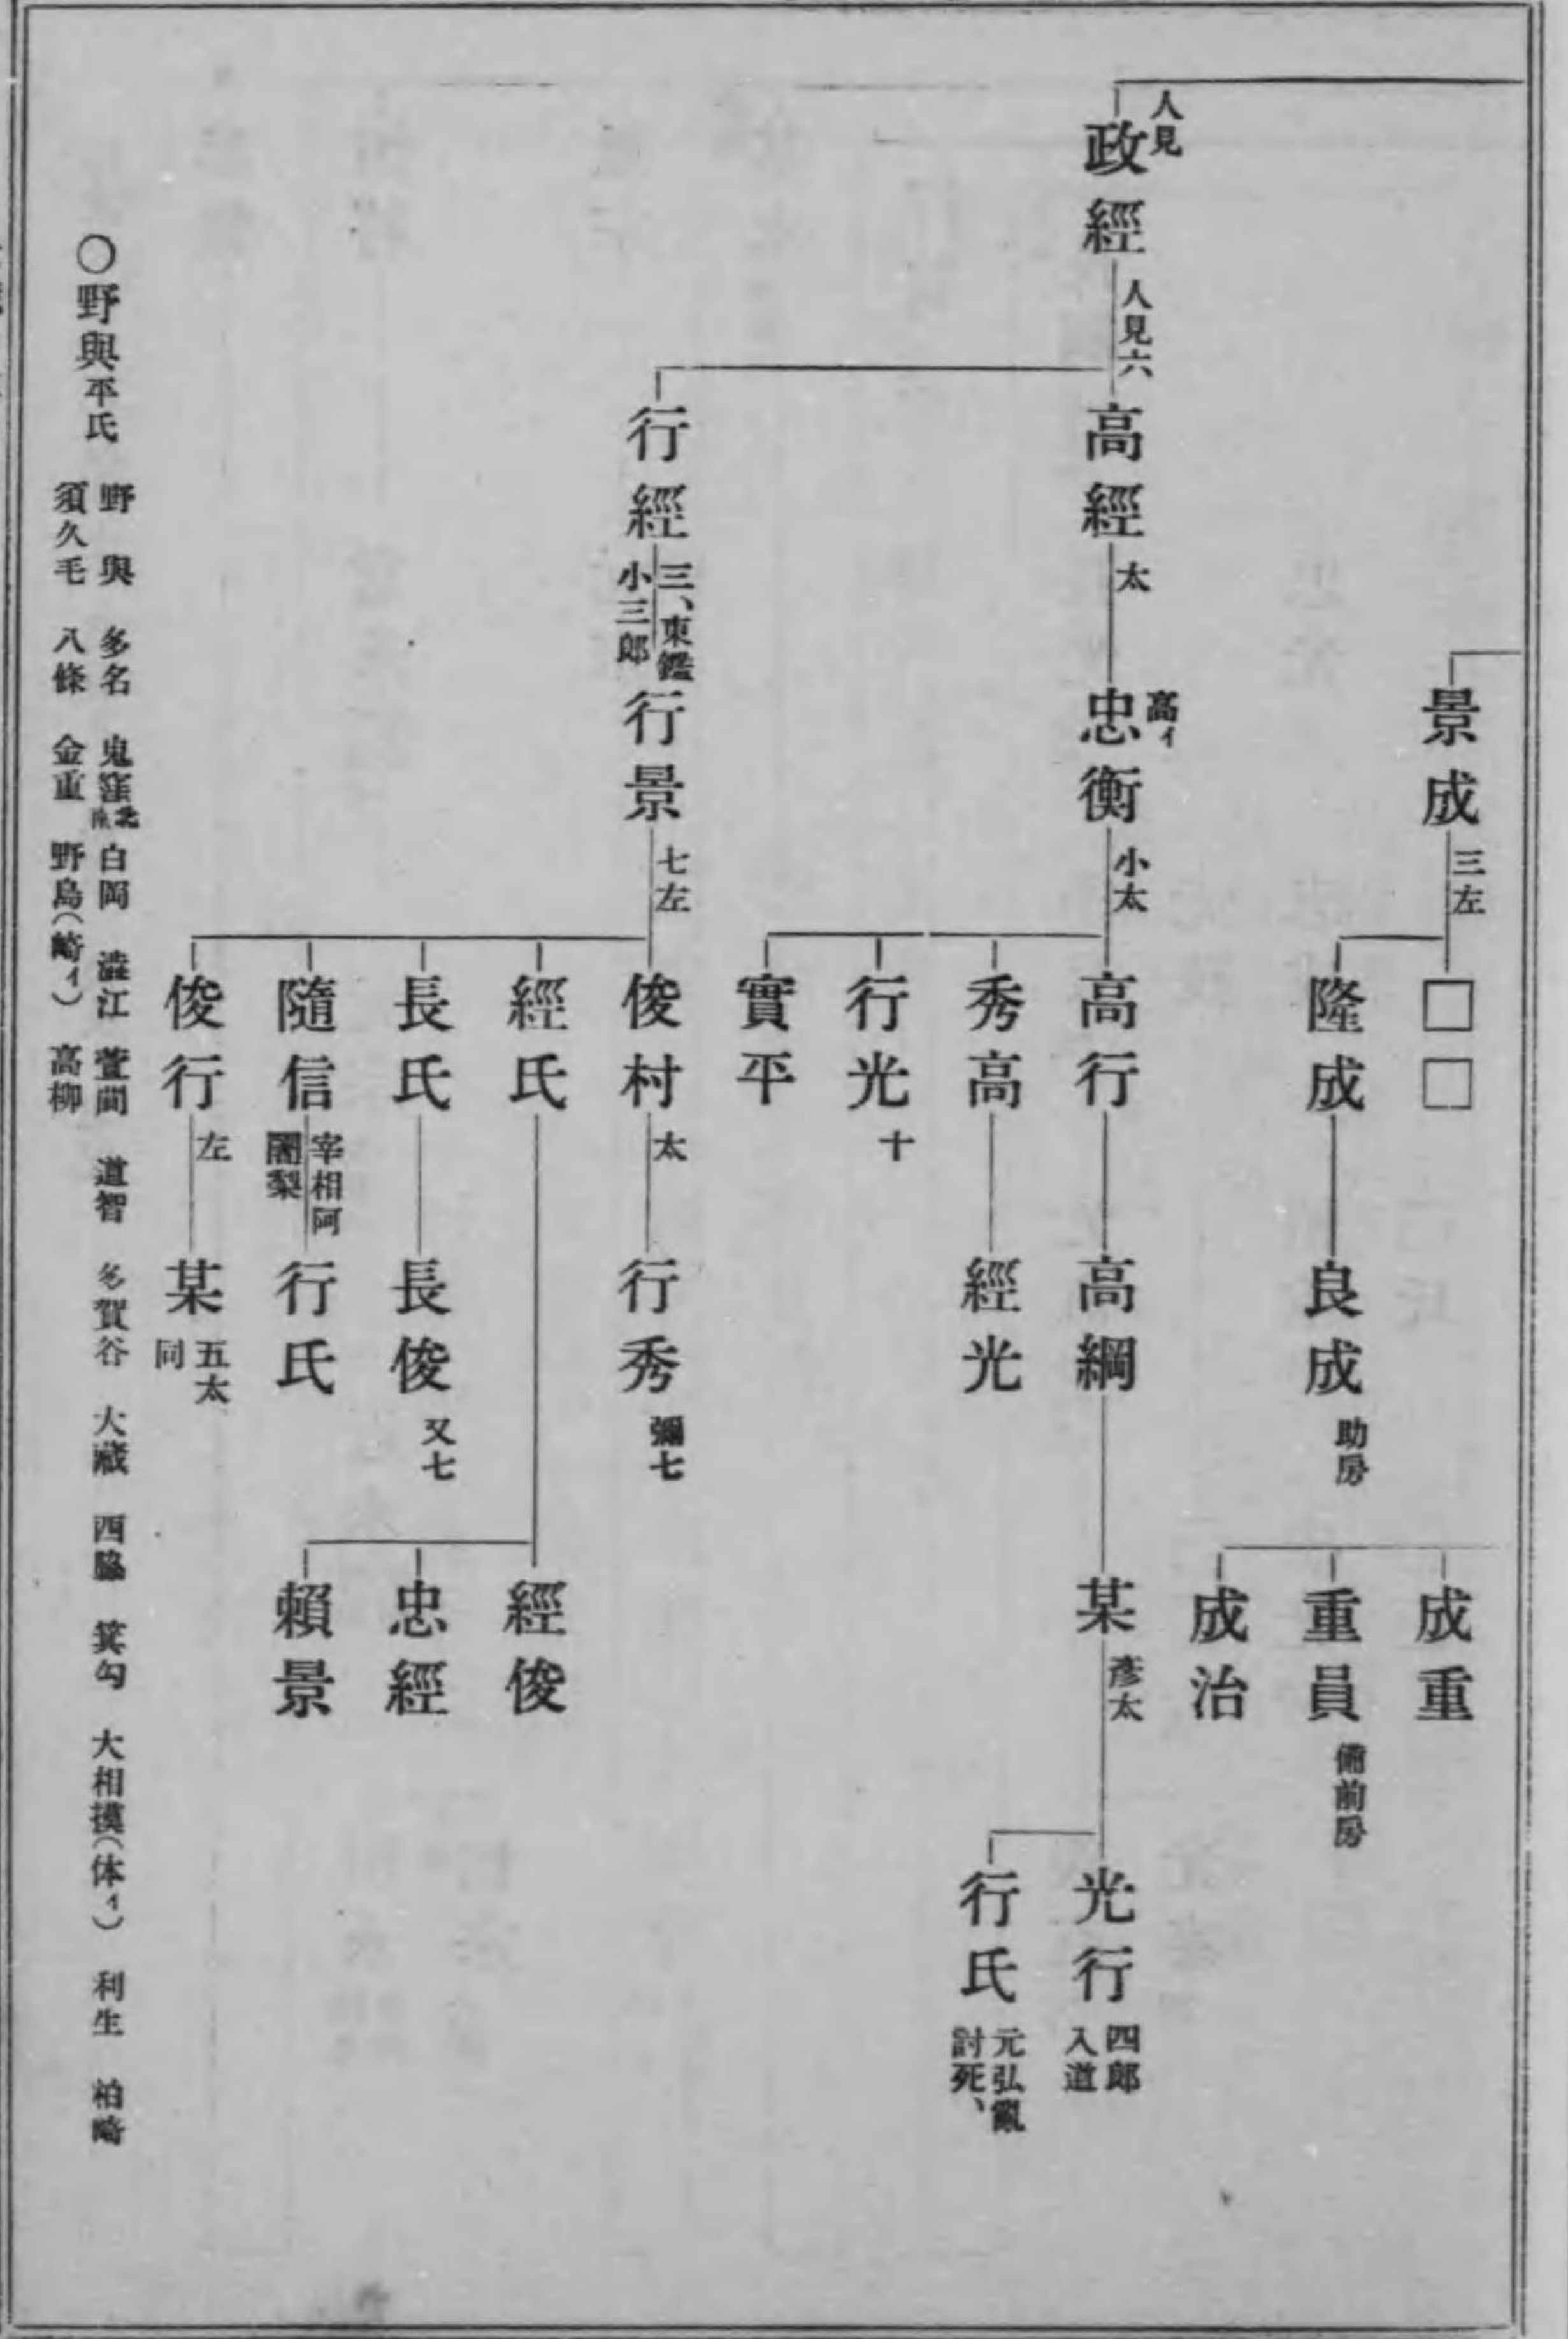 景成 三左
□□
隆成
良成 助房
成重
重員 備前房
成治
人見
政經 人見六
高經 太
高イ
忠衡 小太
高行
高綱
某 彥太
光行 四郎入道
行氏 元弘亂討死、
秀高
經光
行光 十
實平
行經 三、東鑑小三郎
行景 七左
俊村 太
行秀 彌七
經氏
經俊
忠經
賴景
長氏
長俊 又七
隨信 宰相阿闍梨
行氏
俊行 左
某 五太同
〇野與平氏
野與 多名 鬼窪 北南 白岡 澁江 萱間 道智 多賀谷 大藏 西脇 箕勾 大相摸(体イ) 利生 柏崎
須久毛 八條 金重 野島(崎イ) 高柳